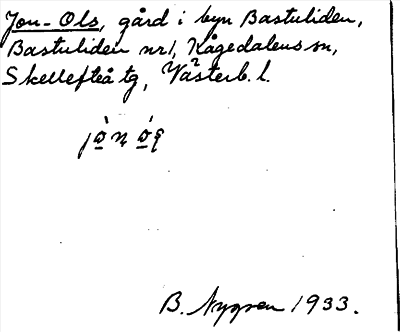 Jon-Ols, gård i byn Bastuliden,
Bastuliden nr 1, Kågedalens sn,
Skellefteå tg, Västerb. l.
B. Nygren 1933.